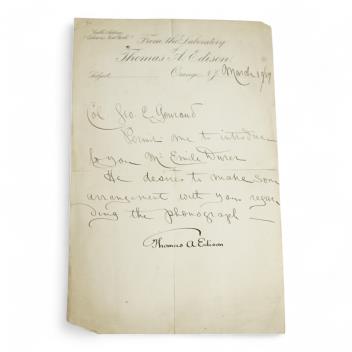 "Cable Address
"Edison, New York"
From the Laboratory
of
Thomas A. Edison.
Subject
Orange, N.J. March 1989
Col Geo. E. Gouraud
Permit me to introduce
to you Mr Emile Durer
He desires to make some
arrangement with you regar
ding the phonograph —
Thomas A Edison